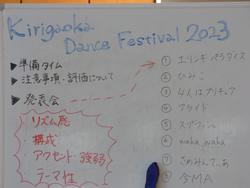 Kirigaoka
Dance Festival 2023
▶準備タイム
▶注意事項・評価について
▶発表会
リズム感
・構成
アクセント・強弱
テーマ性
① エリンギパラダイス
② ひみこ
③ 4人はプリキュア
④ プライド
⑤ スップァン
⑥ waka waka
⑦ ごめんなってぁ
⑧ 今MA